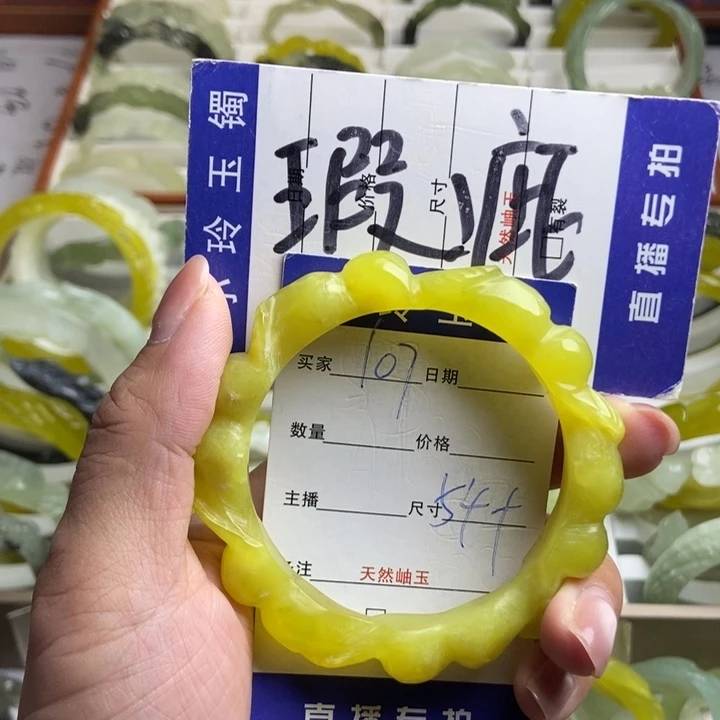 小玲玉镯
瑕疵
日期
价格
尺寸
天然岫玉
有裂
直播专拍
买家 107 日期
数量 价格
主播 尺寸 544
备注 天然岫玉
直播专拍